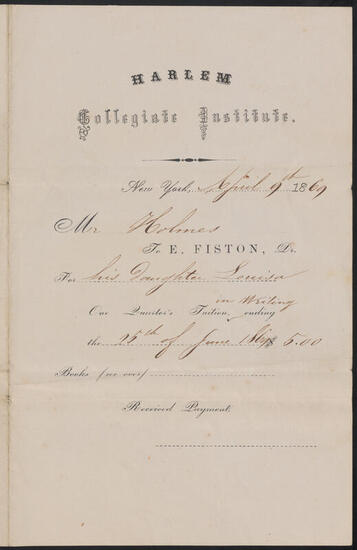 HARLEM
Collegiate Institute.
New York, April 9th 1869
Mr Holmes
To E. FISTON, Dr.
For his Daughter Louisa
in Writing
One Quarter's Tuition, ending
the 25th of June 1869 $5.00
Books (see over)
Received Payment,